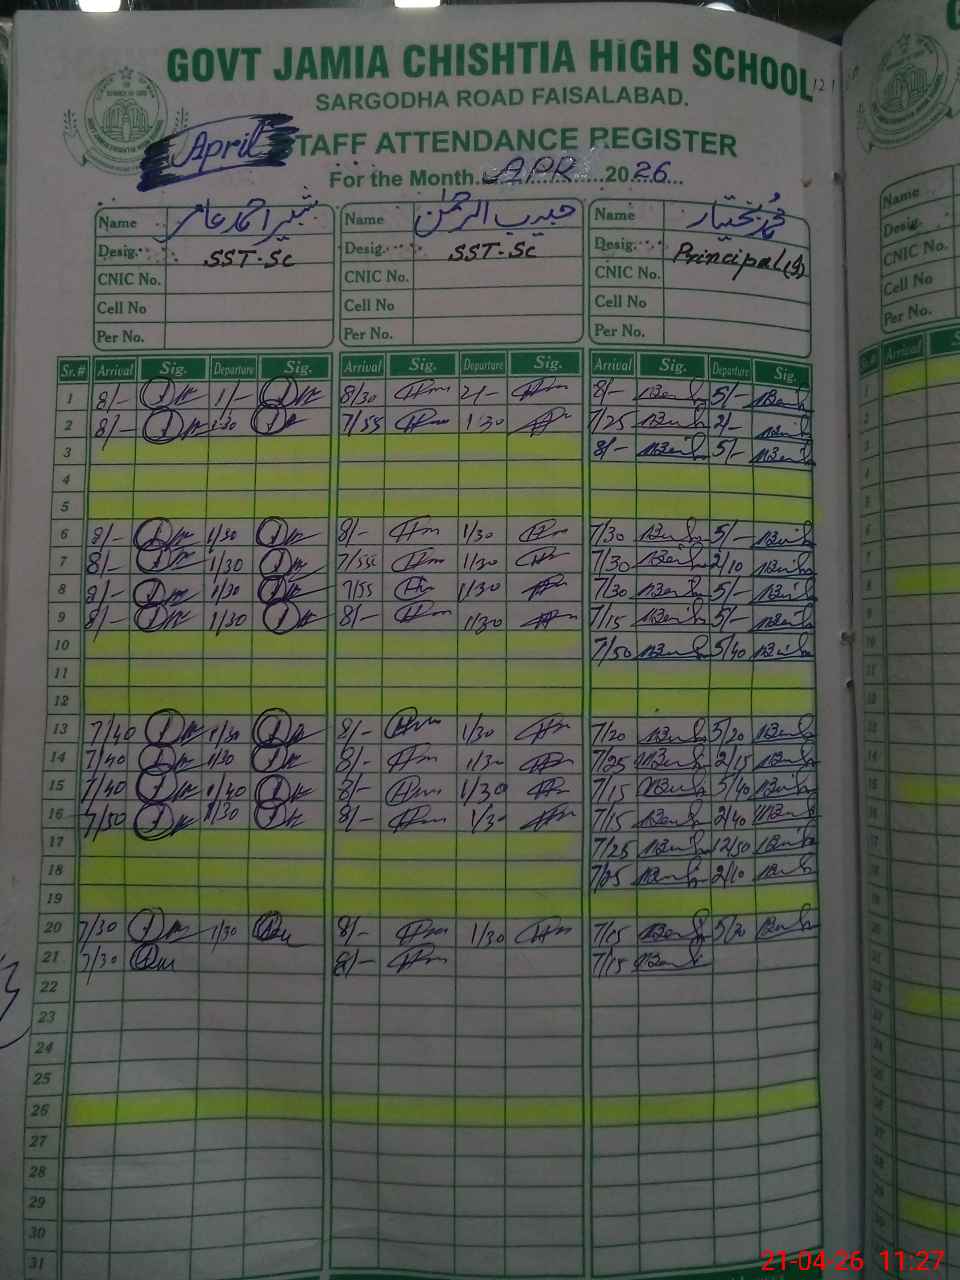 GOVT JAMIA CHISHTIA HIGH SCHOOL
SARGODHA ROAD FAISALABAD.
April STAFF ATTENDANCE REGISTER
For the Month APR 2026
Name شبیر احمد عامر Name حبیب الرحمٰن Name محمد بختیار
Desig. SST-Sc Desig. SST-Sc Desig. Principal
CNIC No. CNIC No. CNIC No.
Cell No Cell No Cell No
Per No. Per No. Per No.
Sr.# Arrival Sig. Departure Sig. Arrival Sig. Departure Sig. Arrival Sig. Departure Sig.
1 8/- 1/- 8/30 2/- 8/- 5/-
2 8/- 1/30 7/55 1/30 7/25 2/-
3 8/- 5/-
4
5
6 8/- 1/30 8/- 1/30 7/30 5/-
7 8/- 1/30 7/55 1/30 7/30 2/10
8 8/- 1/30 7/55 1/30 7/30 5/-
9 8/- 1/30 8/- 1/30 7/15 5/-
10 7/50 5/40
11
12
13 7/40 1/30 8/- 1/30 7/20 5/20
14 7/40 1/30 8/- 1/30 7/25 2/15
15 7/40 1/40 8/- 1/30 7/15 5/40
16 7/50 1/30 8/- 1/30 7/15 2/40
17 7/25 12/50
18 7/25 2/10
19
20 7/30 1/30 8/- 1/30 7/15 5/20
21 7/30 8/- 7/15
22
23
24
25
26
27
28
29
30
31
21-04-26 11:27